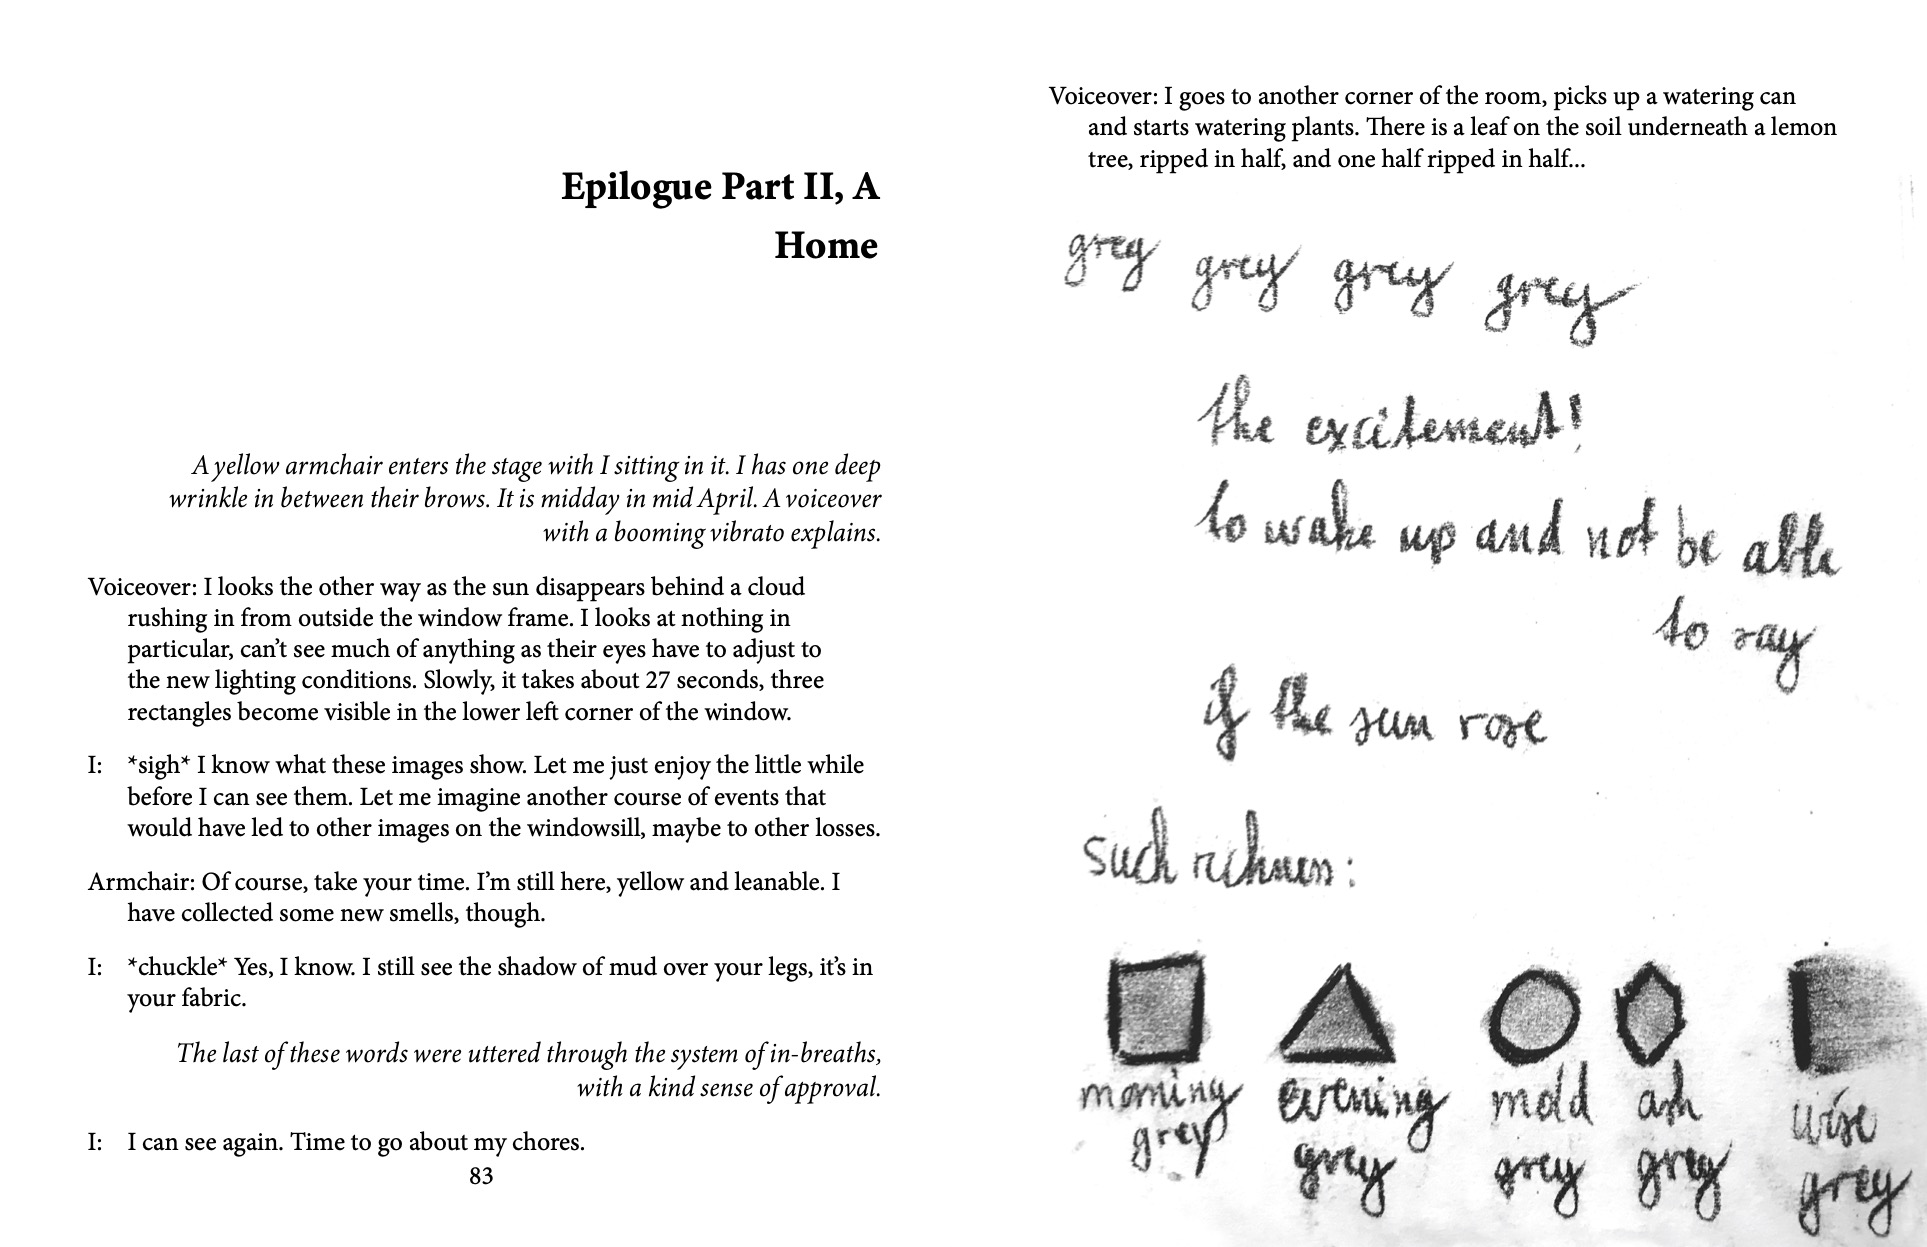 Epilogue Part II, A
Home
A yellow armchair enters the stage with I sitting in it. I has one deep
wrinkle in between their brows. It is midday in mid April. A voiceover
with a booming vibrato explains.
Voiceover: I looks the other way as the sun disappears behind a cloud
rushing in from outside the window frame. I looks at nothing in
particular, can’t see much of anything as their eyes have to adjust to
the new lighting conditions. Slowly, it takes about 27 seconds, three
rectangles become visible in the lower left corner of the window.
I: *sigh* I know what these images show. Let me just enjoy the little while
before I can see them. Let me imagine another course of events that
would have led to other images on the windowsill, maybe to other losses.
Armchair: Of course, take your time. I’m still here, yellow and leanable. I
have collected some new smells, though.
I: *chuckle* Yes, I know. I still see the shadow of mud over your legs, it’s in
your fabric.
The last of these words were uttered through the system of in-breaths,
with a kind sense of approval.
I: I can see again. Time to go about my chores.
83
Voiceover: I goes to another corner of the room, picks up a watering can
and starts watering plants. There is a leaf on the soil underneath a lemon
tree, ripped in half, and one half ripped in half...
grey grey grey grey
the excitement!
to wake up and not be able
to say
if the sun rose
such richness:
morning evening mold ash wise
grey grey grey grey grey